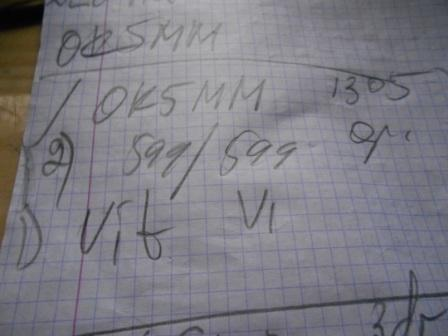 OK5MM
/ OK5MM 1305
2) 599/599 op.
1) Vít Vi